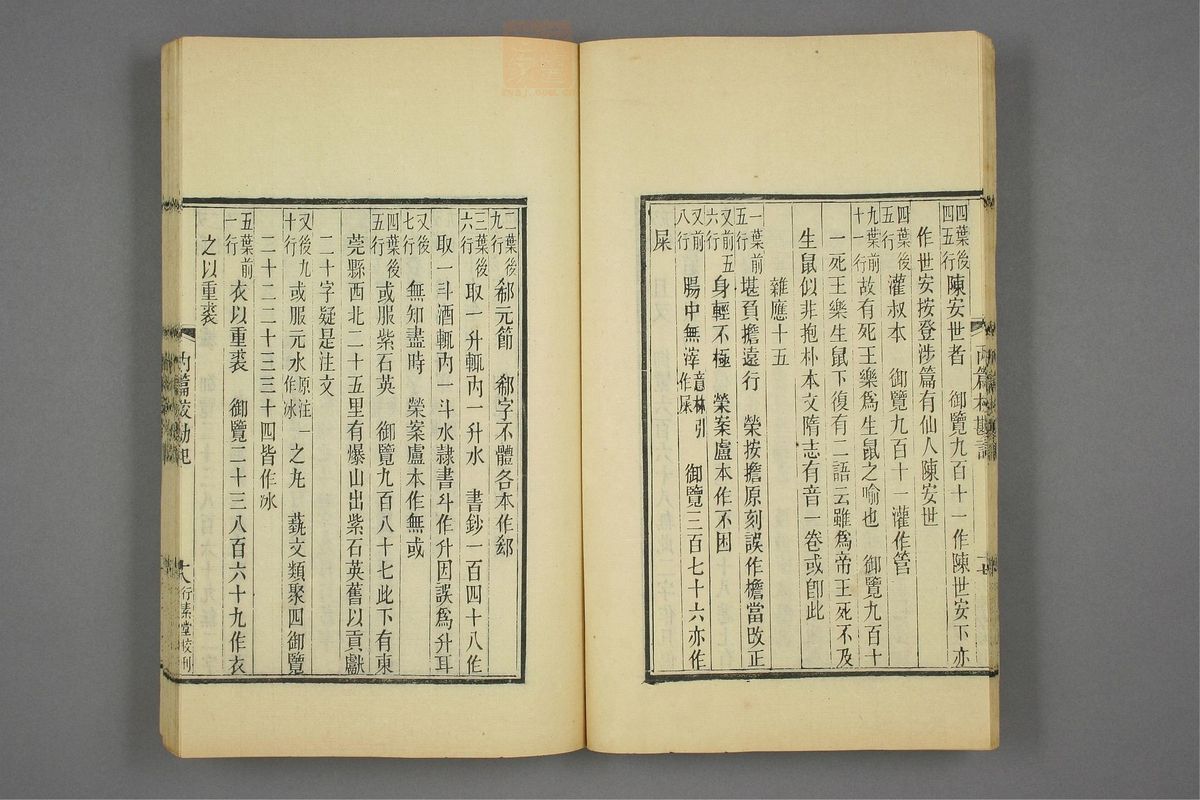 四葉後四五行陳安世者　御覽九百十一作陳世安下亦
作世安按登涉篇有仙人陳安世
四葉後五行灌叔本　御覽九百十一灌作管
九葉前十一行故有死王樂爲生鼠之喻也　御覽九百十
一死王樂生鼠下復有二語云雖爲帝王死不及
生鼠似非抱朴本文隋志有音一卷或卽此
雜應十五
一葉前五行堪負擔遠行　榮按擔原刻誤作檐當改正
又前五六行身輕不極　榮案盧本作不困
又前八行腸中無滓意林引作屎　御覽三百七十六亦作
屎
內篇校勘記
二葉後九行郗元節　郗字不體各本作郄
三葉後六行取一升輒內一升水　書鈔一百四十八作
取一斗酒輒內一斗水隸書斗作升因誤爲升耳
又後七行無知盡時　榮案盧本作無或
四葉後五行或服紫石英　御覽九百八十七此下有東
莞縣西北二十五里有爆山出紫石英舊以貢獻
二十字疑是注文
又後九十行或服元水原注一作冰之丸　蓺文類聚四御覽
二十二二十三三十四皆作冰
五葉前一行衣以重裘　御覽二十三八百六十九作衣
之以重裘
內篇校勘記
十八
行素堂校刊